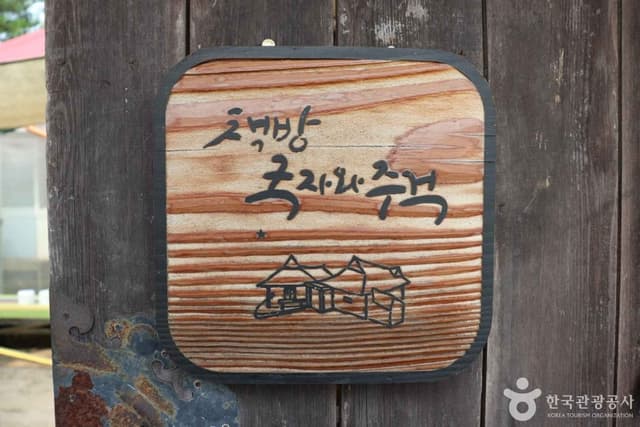 책방
국자와주걱
한국관광공사
KOREA TOURISM ORGANIZATION